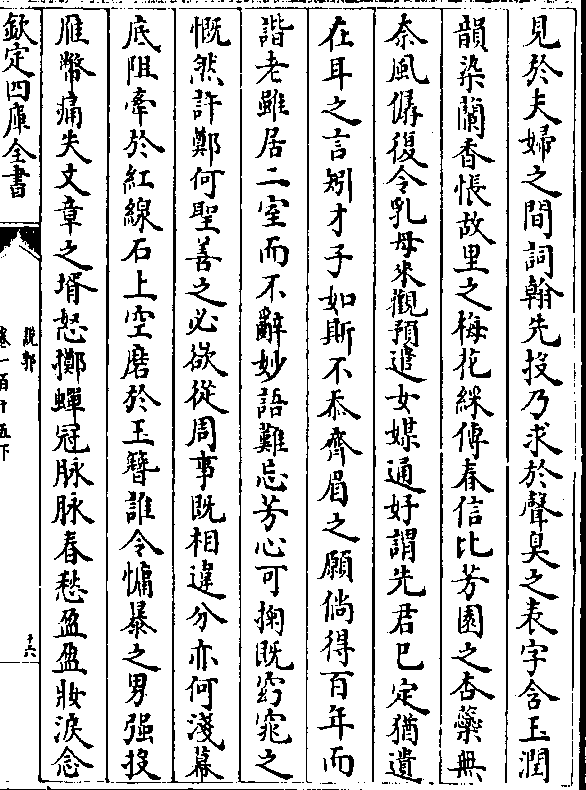 見於夫婦之間詞翰先投乃求於聲臭之表字含玉潤
韻染蘭香悵故里之梅花綵傳春信比芳園之杏蘂無
奈風僝復令乳母來觀預遣女媒通好謂先君已定猶遺
在耳之言矧才子如斯不忝齊眉之願倘得百年而
諧老雖居二室而不辭妙語難忘芳心可掬既窈窕之
慨然許鄭何聖善之必欲從周事既相違分亦何淺幕
底阻牽於紅線石上空磨於玉簪誰令慵暴之男强投
雁幣痛失文章之壻怒擲蟬冠脉脉春愁盈盈妝淚念
欽定四庫全書
說郛
卷一百十五下
十六